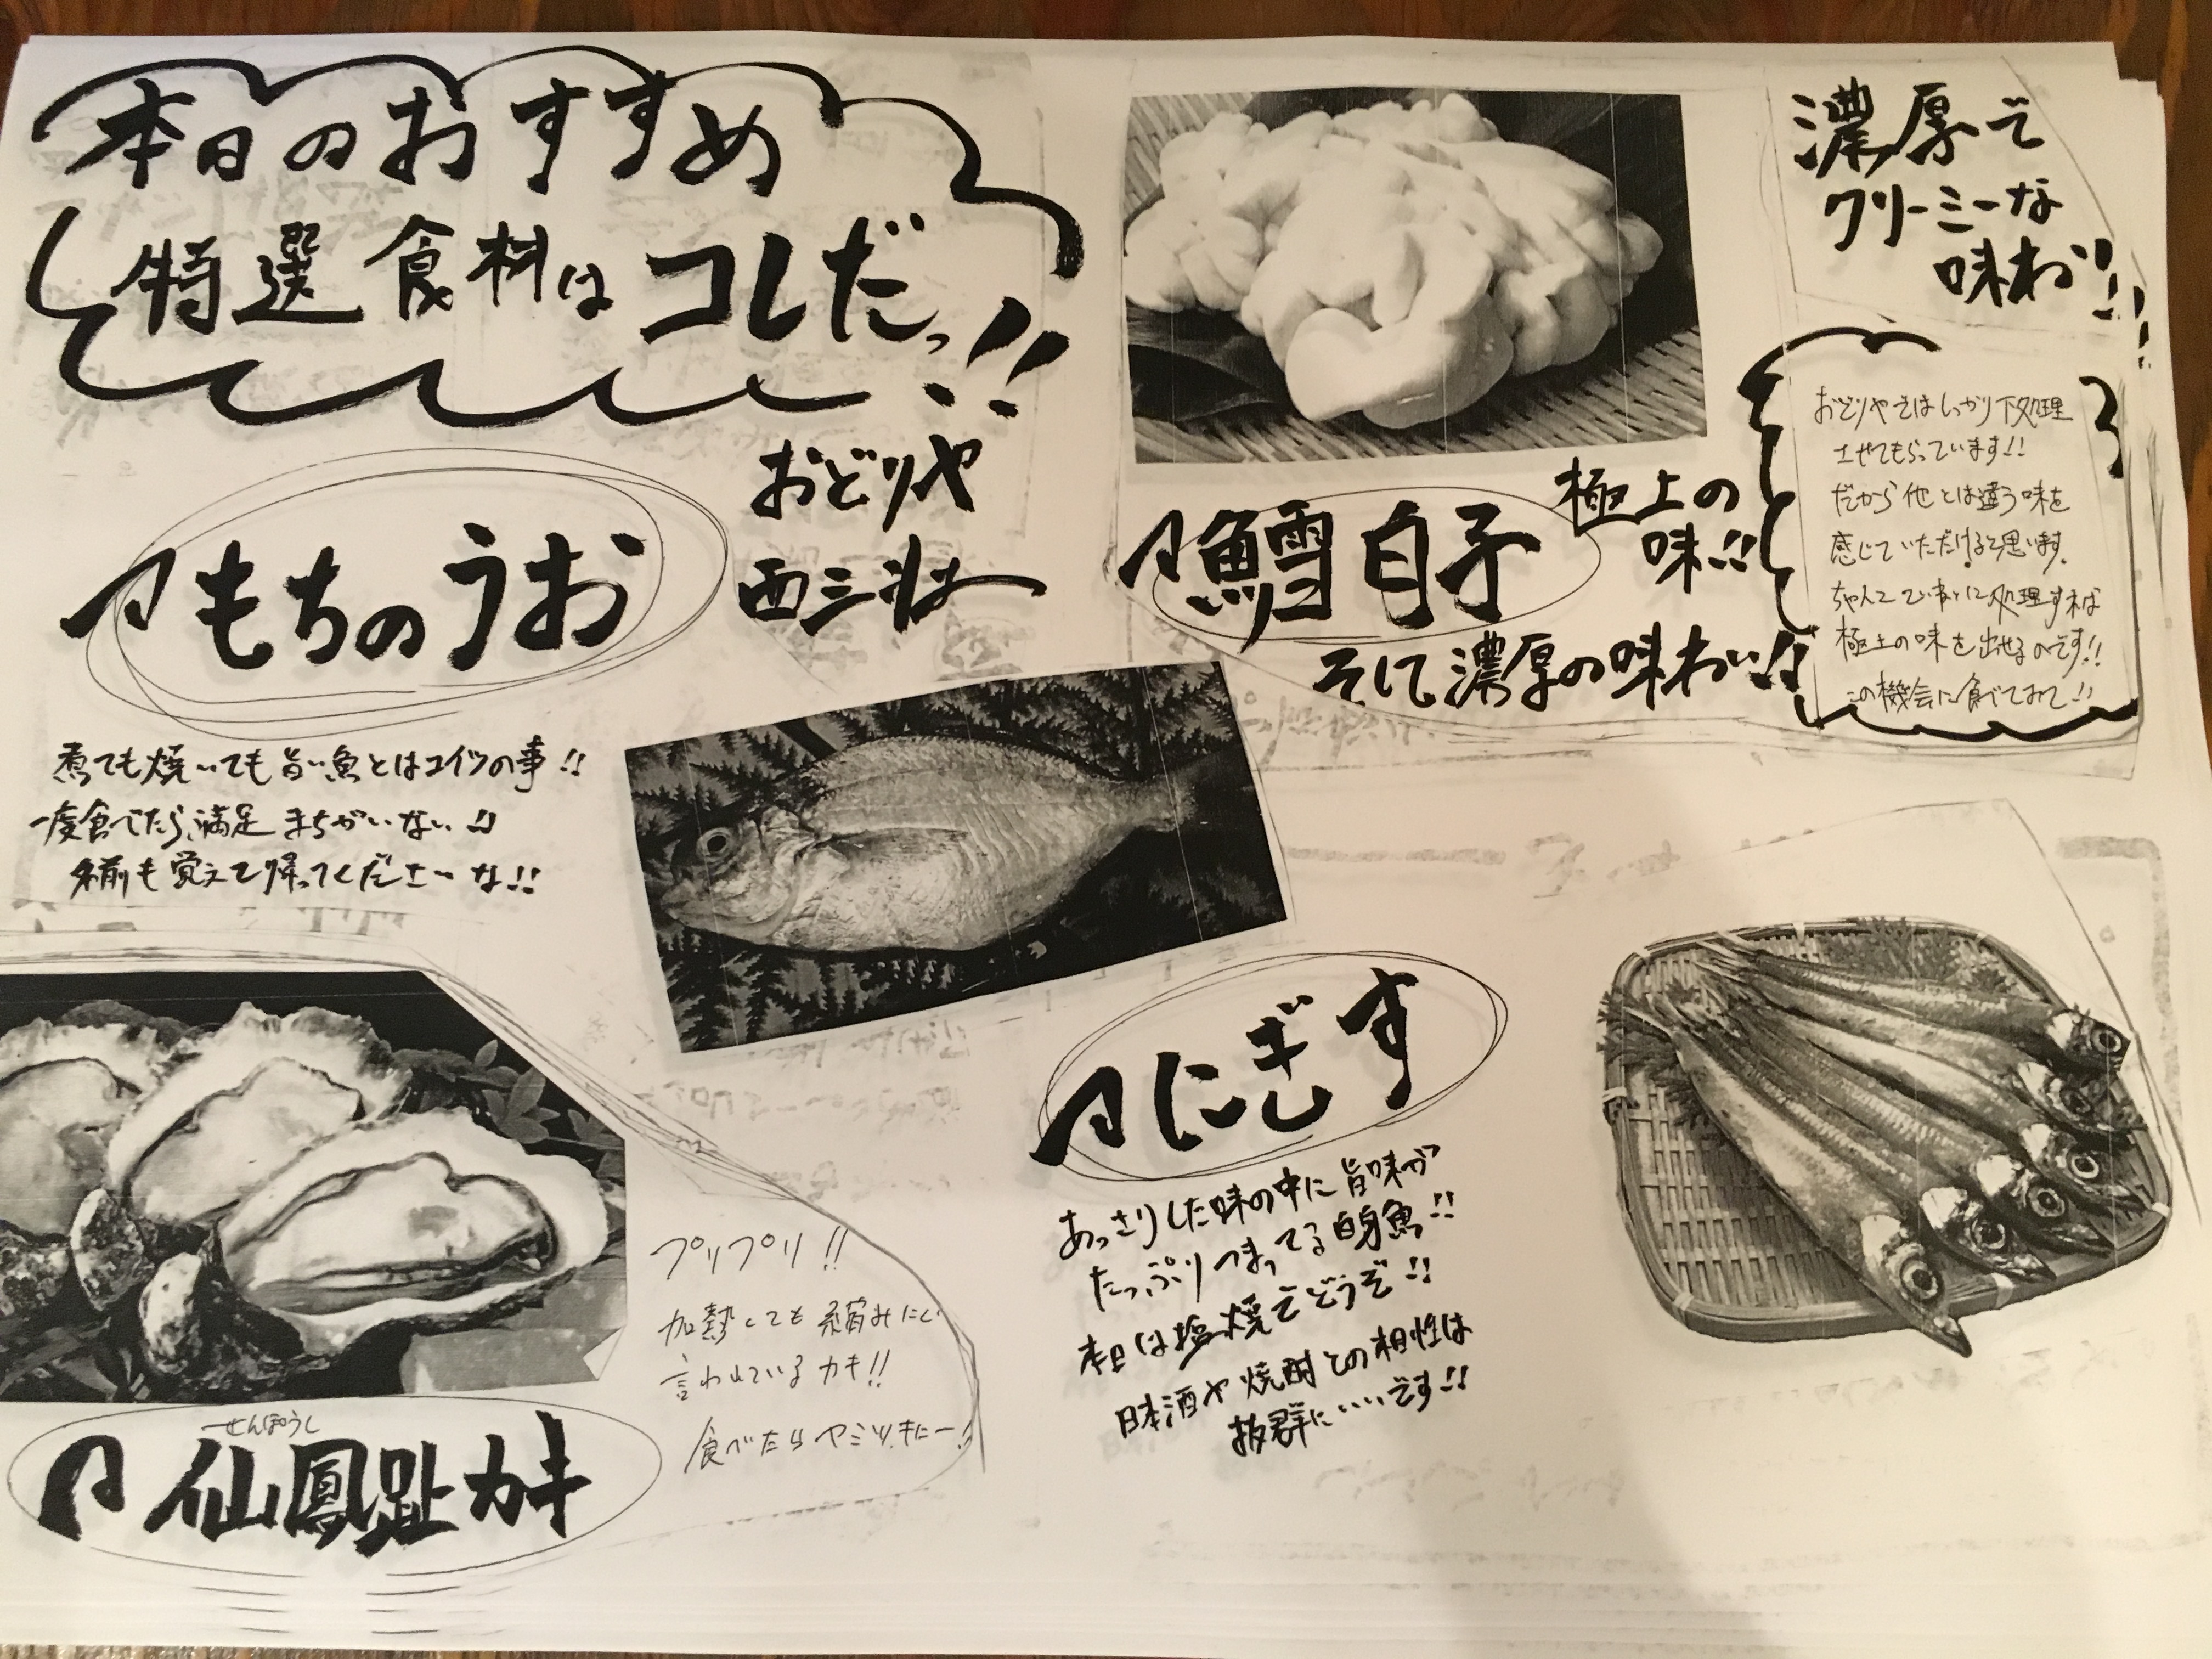 本日のおすすめ
特選食料はコレだっ!!
おどりや
西三荘
もちのうお
煮ても焼いても旨い魚とはコイツの事!!
一度食べたら、満足まちがいない!!
名前も覚えて帰ってくださいな!!
濃厚で
クリーミーな
味わい!!
鱈白子
極上の
味!!
そして濃厚の味わい!!
おどりやではしっかり下処理
させてもらっています!!
だから他とは違う味を
感じていただけると思います。
ちゃんとていねいに処理すれば
極上の味を出せるのです!!
この機会に食べてみて!!
にぎす
あっさりした味の中に旨味が
たっぷりつまってる白身魚!!
本日は塩焼でどうぞ!!
日本酒や焼酎との相性は
抜群にいいです!!
プリプリ!!
加熱しても縮みにくい
言われているカキ!!
食べたらヤミツキにー!
せんぽうし
仙鳳趾カキ